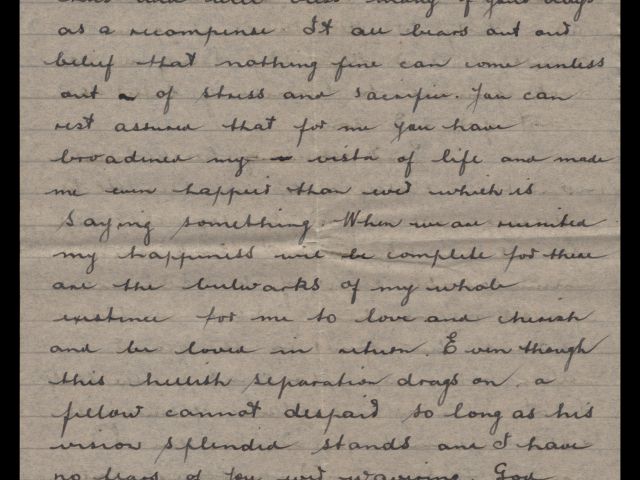 and will bless many of your days
as a recompense It all bears out our
belief that nothing fine can come unless
out of stress and sacrifice. You can
rest assured that for me you have
broadened my vista of life and made
me even happier than ever which is
saying something. When we are reunited
my happiness will be complete for these
are the bulwarks of my whole
existence for me to love and cherish
and be loved in return. Even though
this hellish separation drags on, a
fellow cannot despair so long as his
vision splendid stands and I have
no fears of you ever wavering. God